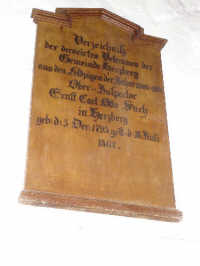 Verzeichniß
der decorirten Veteranen der
Gemeinde Herzberg
aus den Feldzügen der
Ober-Inspector
Ernst Carl Otto
in Herzberg
geb. d. 5 Dec. 1795 gest. d. 18